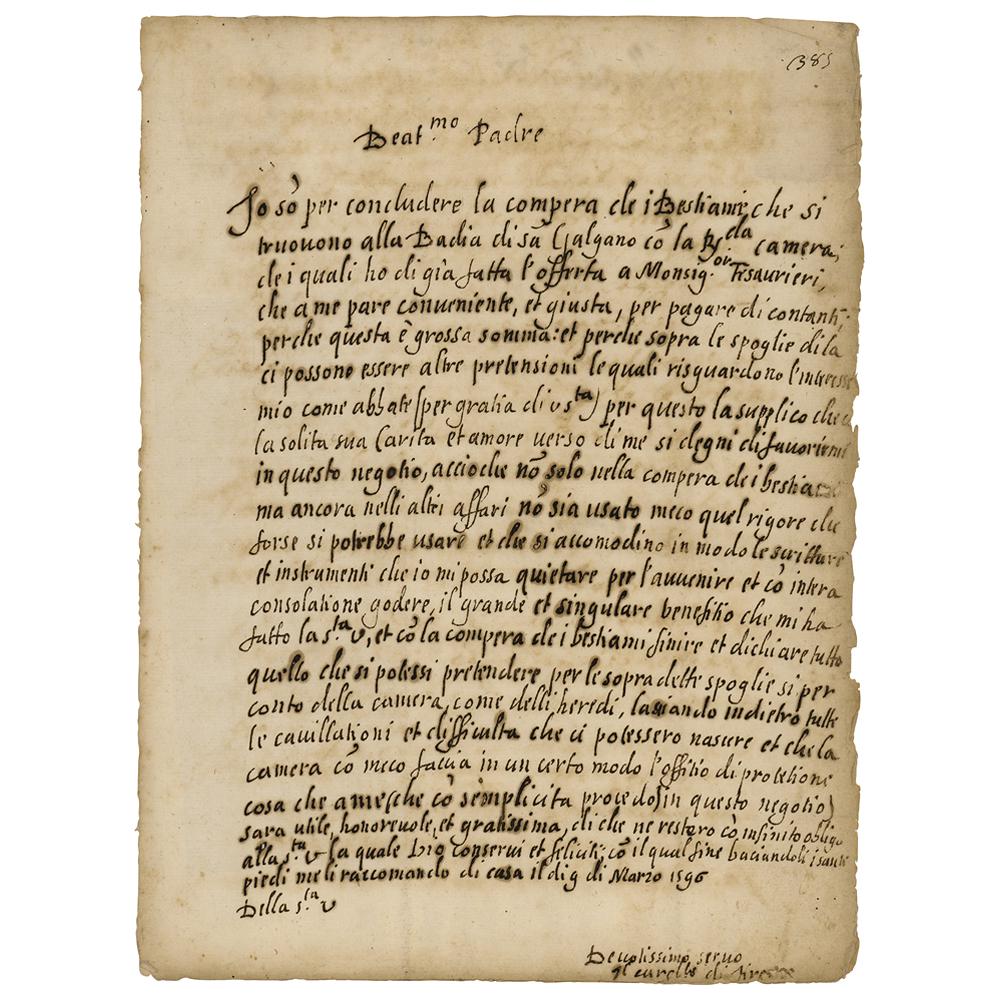 385
Beat.mo Padre
Jo sò per concludere la compera de i Bestiami, che si
truovono alla Badia di sã Galgano cõ la R.da camera;
de i quali ho di già fatta l'offerta a Monsig.or Tesaurieri,
che a me pare conveniente, et giusta, per pagare di contanti;
perche questa è grossa somma: et perche sopra le spoglie di la
ci possono essere altre pretensioni le quali risguardono l'interesse
mio come abbate (per gratia di v s.ta) per questo la supplico che
la solita sua Carita et amore verso di me si degni di favorirmi
in questo negotio, accioche nõ solo nella compera de i bestiami
ma ancora nelli altri affari nõ sia usato meco quel rigore che
forse si potrebbe usare et che si accomodino in modo le scritture
et instrumenti che io mi possa quietare per l'avvenire et cõ intera
consolatione godere, il grande et singulare benefitio che mi ha
fatto la s.ta v, et cõ la compera de i bestiami finire et dichiare tutto
quello che si potessi pretendere per le sopradette spoglie si per
conto della camera, come delli heredi, lasiando indietro tutte
le cavillationi et difficulta che ci potessero nascere et che la
camera cõ meco faccia in un certo modo l'offitio di protetione
cosa che a me (che cõ semplicita procedo in questo negotio)
sara utile, honorevole, et gratissima, di che ne restero cõ infinito obligo
alla s.ta v la quale Dio conservi et feliciti; cõ il qual fine baciandoli i santi
piedi me li raccomando di casa il di 9 di Marzo 1596
Della s.ta v
Devotissimo servo
Il di